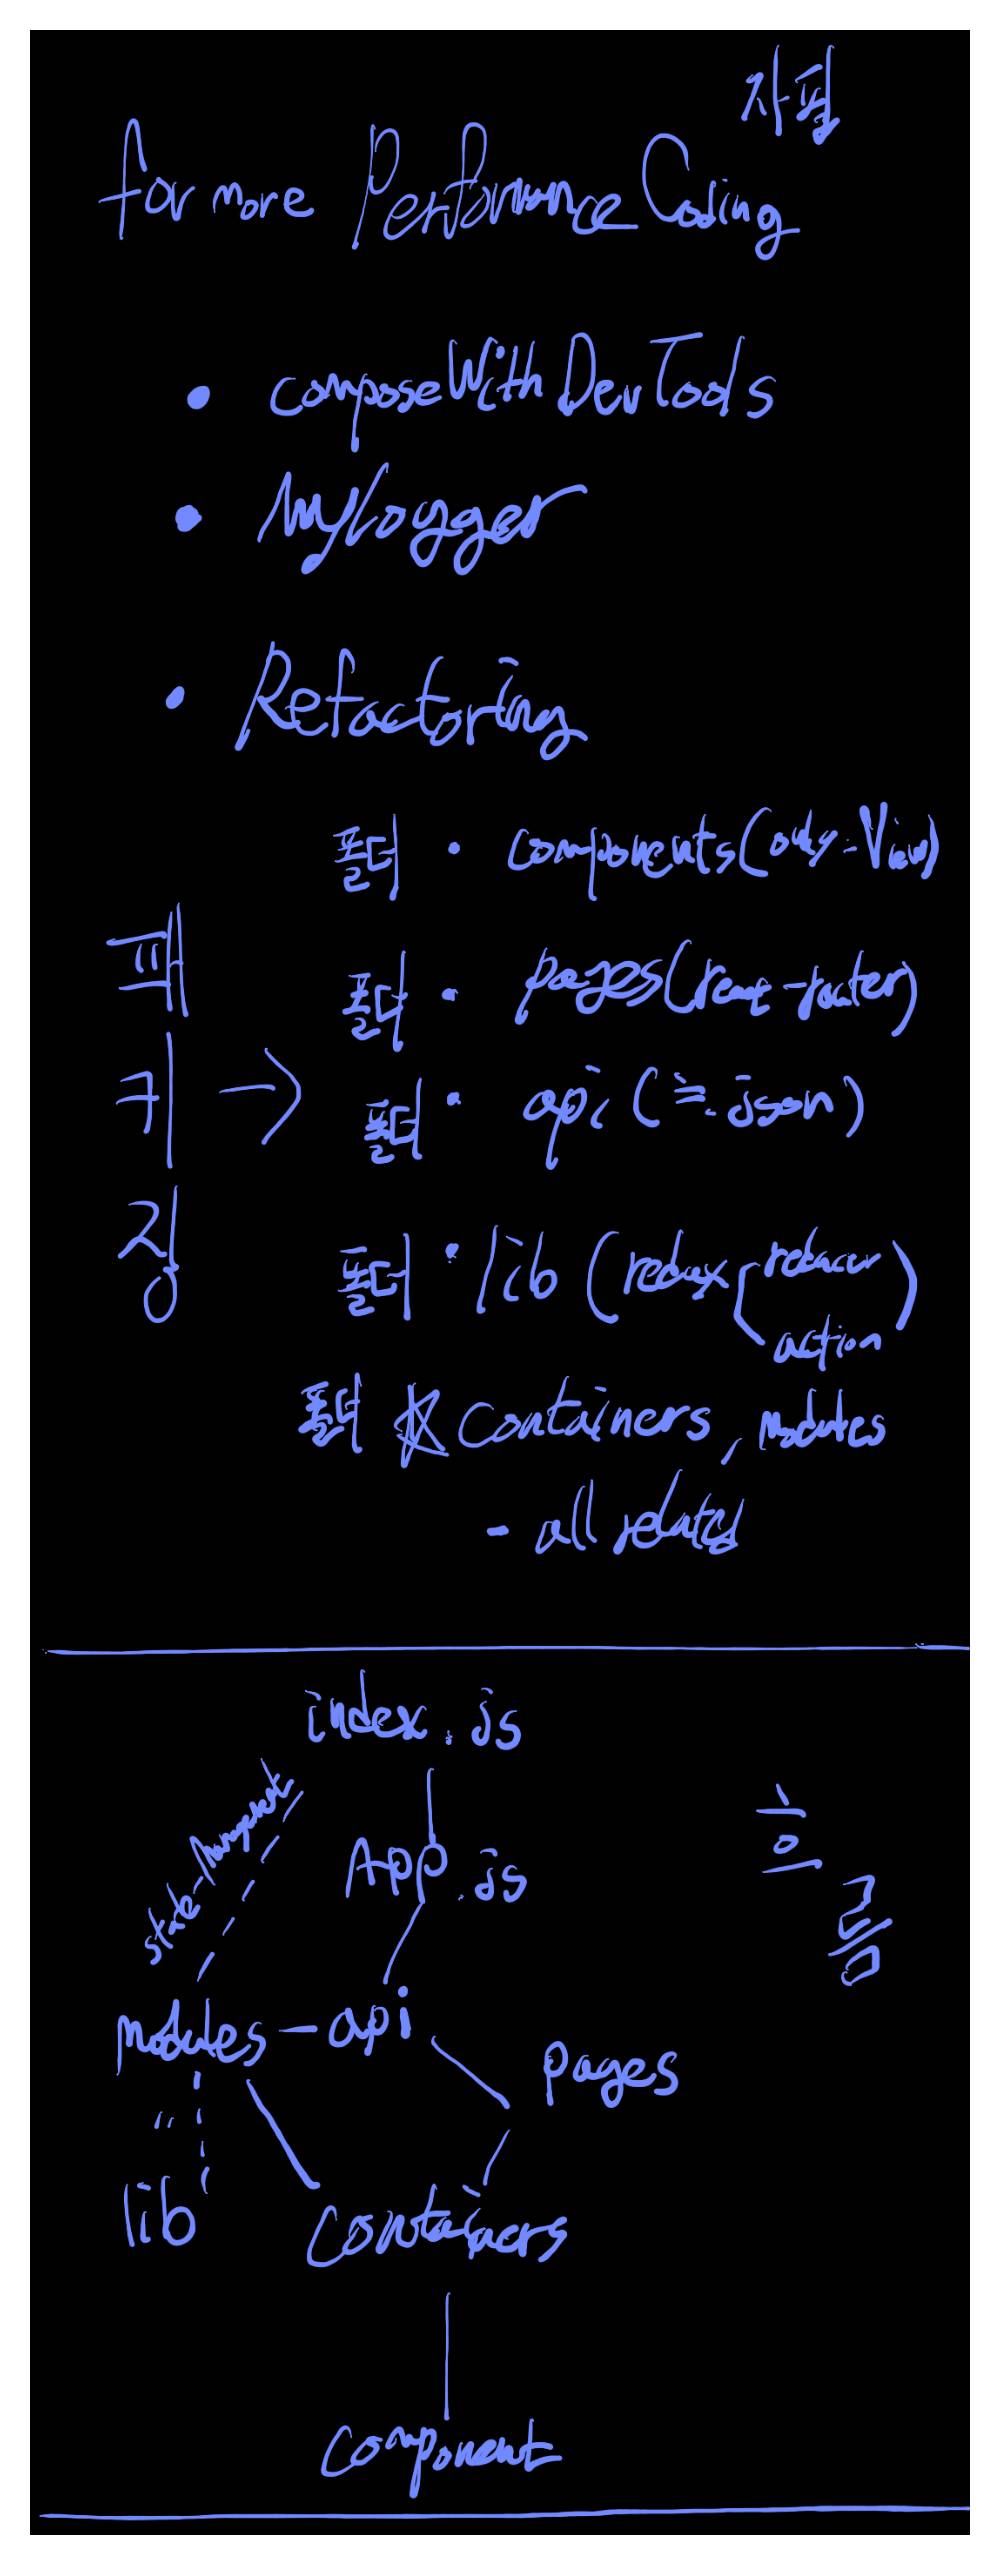 자필
for more Performance Coding
• composeWithDevTools
• myLogger
• Refactoring
폴더 • components(only=View)
패키징 → 폴더 • pages(react-router)
폴더 • api (≒.json)
폴더 • lib (redux reducer
action)
폴더 containers, modules
- all related
index.js
App.js
state-management
modules - api
pages
〃
lib
containers
component
흐름